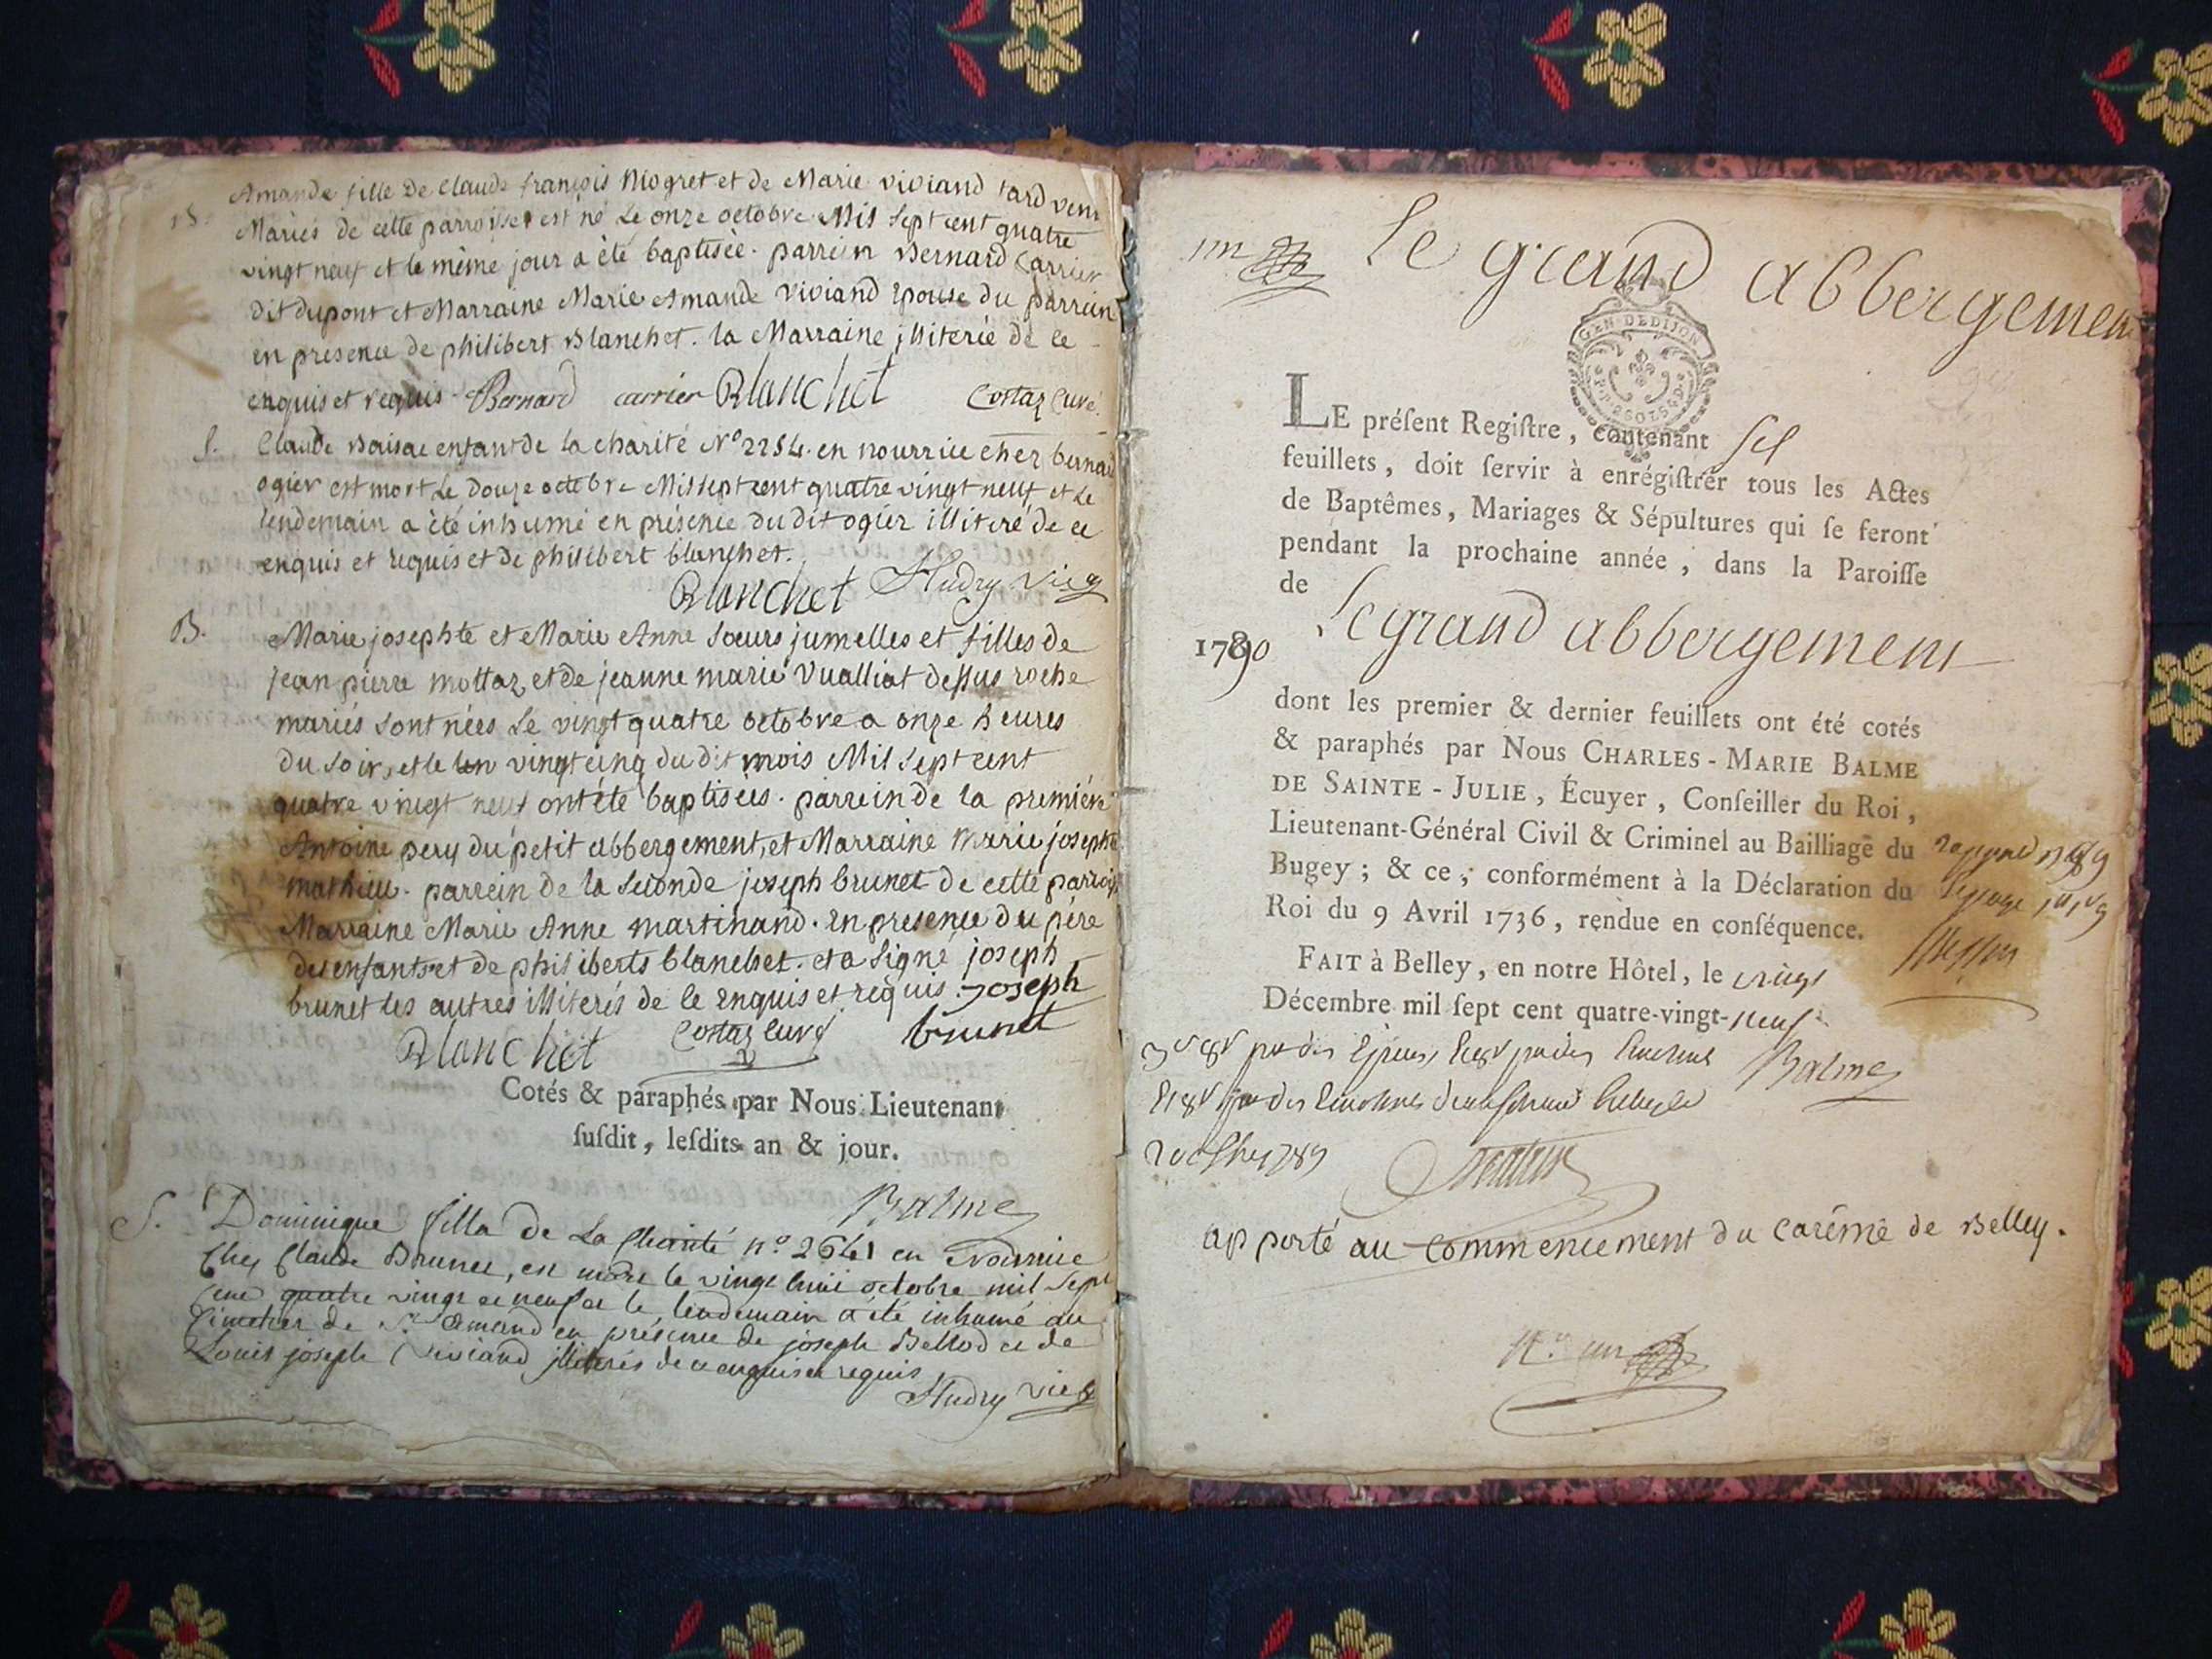 B. Amande fille de Claude françois Niogret et de Marie viviand tard venu
Mariés de cette parroisse est né Le onze octobre Mil Sept cent quatre
vingt neuf et le même jour a été baptisée. parrein Bernard Carrier
dit dupont et Marraine Marie Amande Viviand Epouse du parrein
en presence de philibert Blanchet. la Marraine illiterée de ce
enquis et requis. Bernard carrier Blanchet Costaz Curé.
S. Claude Baisae enfant de la charité N° 2254. en nourrice chez bernard
ogier est mort Le Douze octobre Mil sept cent quatre vingt neuf et Le
lendemain a été inhumé en présence du dit ogier illiteré de ce
enquis et requis et de philibert blanchet.
Blanchet Hudry Vic
B. Marie josephte et Marie Anne Soeurs jumelles et filles de
jean pierre mottaz et de jeanne marie Vualliat dessus roche
mariés sont nées Le vingt quatre octobre a onze heures
du soir, et le vingt cinq du dit mois Mil Sept cent
quatre vingt neuf ont été baptisées. parrein de la premiére
Antoine pery du petit abbergement, et Marraine Marie josephte
mathieu. parrein de la Seconde joseph brunet de cette parroisse
Marraine Marie Anne martinand. En presence du père
des enfants et de philiberts blanchet. et a Signé joseph
brunet les autres illiterés de ce enquis et requis. joseph
Blanchet Costaz curé brunet
Cotés & paraphés par Nous Lieutenant
ſuſdit, leſdits an & jour.
Balme
S. Dominique filla de La Charité n° 2641 en Nourrice
Chez Claude Brunet, est morte le vingt huit octobre mil Sept
Cent quatre vingt et neuf et le lendemain a été inhumé au
Cimetier de St Amand en présence de joseph Bellod et de
Louis joseph Viviand illiterés de ce enquis et requis
Hudry vic
un Le grand abbergement
GEN. DE DIJON
LE préſent Regiſtre, contenant
feuillets, doit ſervir à enrégiſtrer tous les Actes
de Baptêmes, Mariages & Sépultures qui ſe feront
pendant la prochaine année, dans la Paroiſſe
de Le grand abbergement
1790
dont les premier & dernier feuillets ont été cotés
& paraphés par Nous CHARLES-MARIE BALME
DE SAINTE-JULIE, Écuyer, Conſeiller du Roi,
Lieutenant-Général Civil & Criminel au Bailliage du
Bugey; & ce, conformément à la Déclaration du
Roi du 9 Avril 1736, rendue en conſéquence.
FAIT à Belley, en notre Hôtel, le vingt
Décembre mil ſept cent quatre-vingt-neuf
Balme
apporté au commencement du carême de Belley.
un